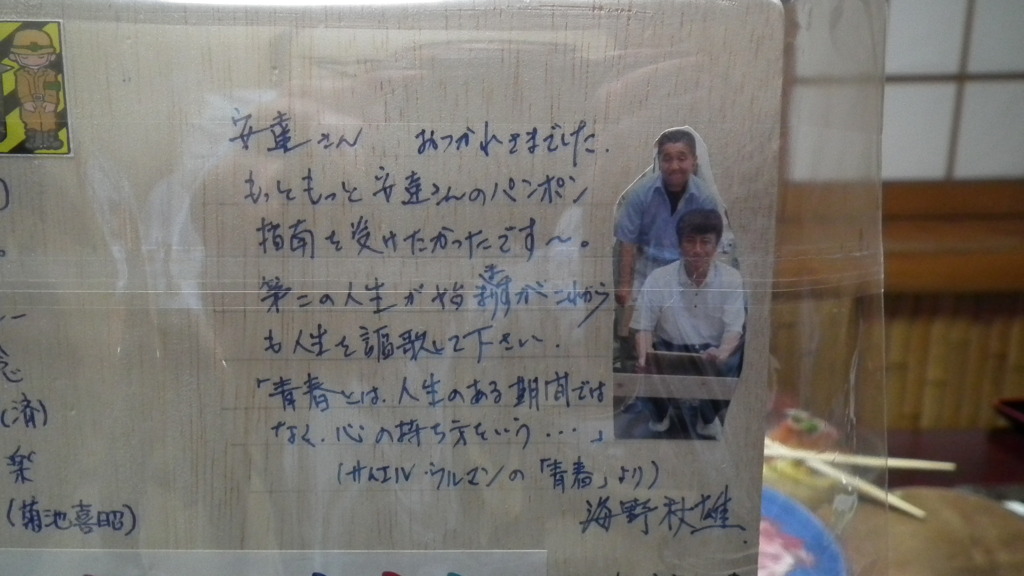 安達さん おつかれさまでした.
もっともっと安達さんのパンポン
指南を受けたかったです〜。
第二の人生が始まりますがこれから
も人生を謳歌して下さい.
「青春とは、人生のある期間では
なく、心の持ち方をいう・・・」
(サムエル・ウルマンの「青春」より)
海野秋雄.
念
(済)
楽
(菊池喜昭)